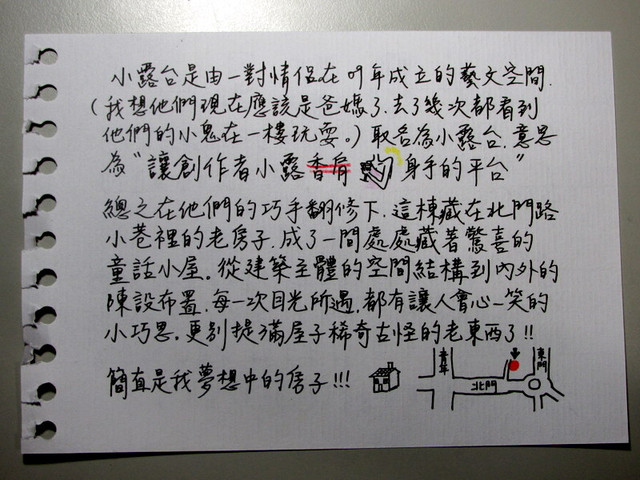 小露台是由一對情侶在09年成立的藝文空間.
(我想他們現在應該是爸媽了.去了幾次都看到
他們的小鬼在一樓玩耍。)取名為小露台.意思
為“讓創作者小露香肩 身手的平台”
總之在他們的巧手翻修下.這棟藏在北門路
小巷裡的老房子.成了一間處處藏著驚喜的
童話小屋。從建築主體的空間結構到內外的
陳設布置.每一次目光所過.都有讓人會心一笑的
小巧思。更別提滿屋子稀奇古怪的老東西了!!
簡直是我夢想中的房子!!!
青年
北門
東門